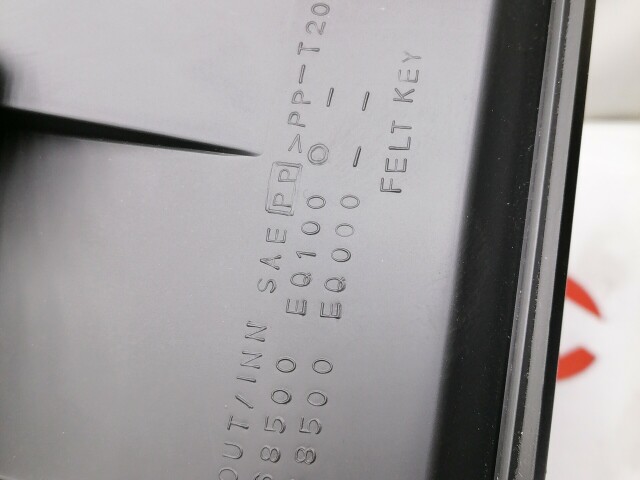 OUT/INN SAE PP >PP-T20
68500 EQ100 O -
8500 EQ000 - -
FELT KEY